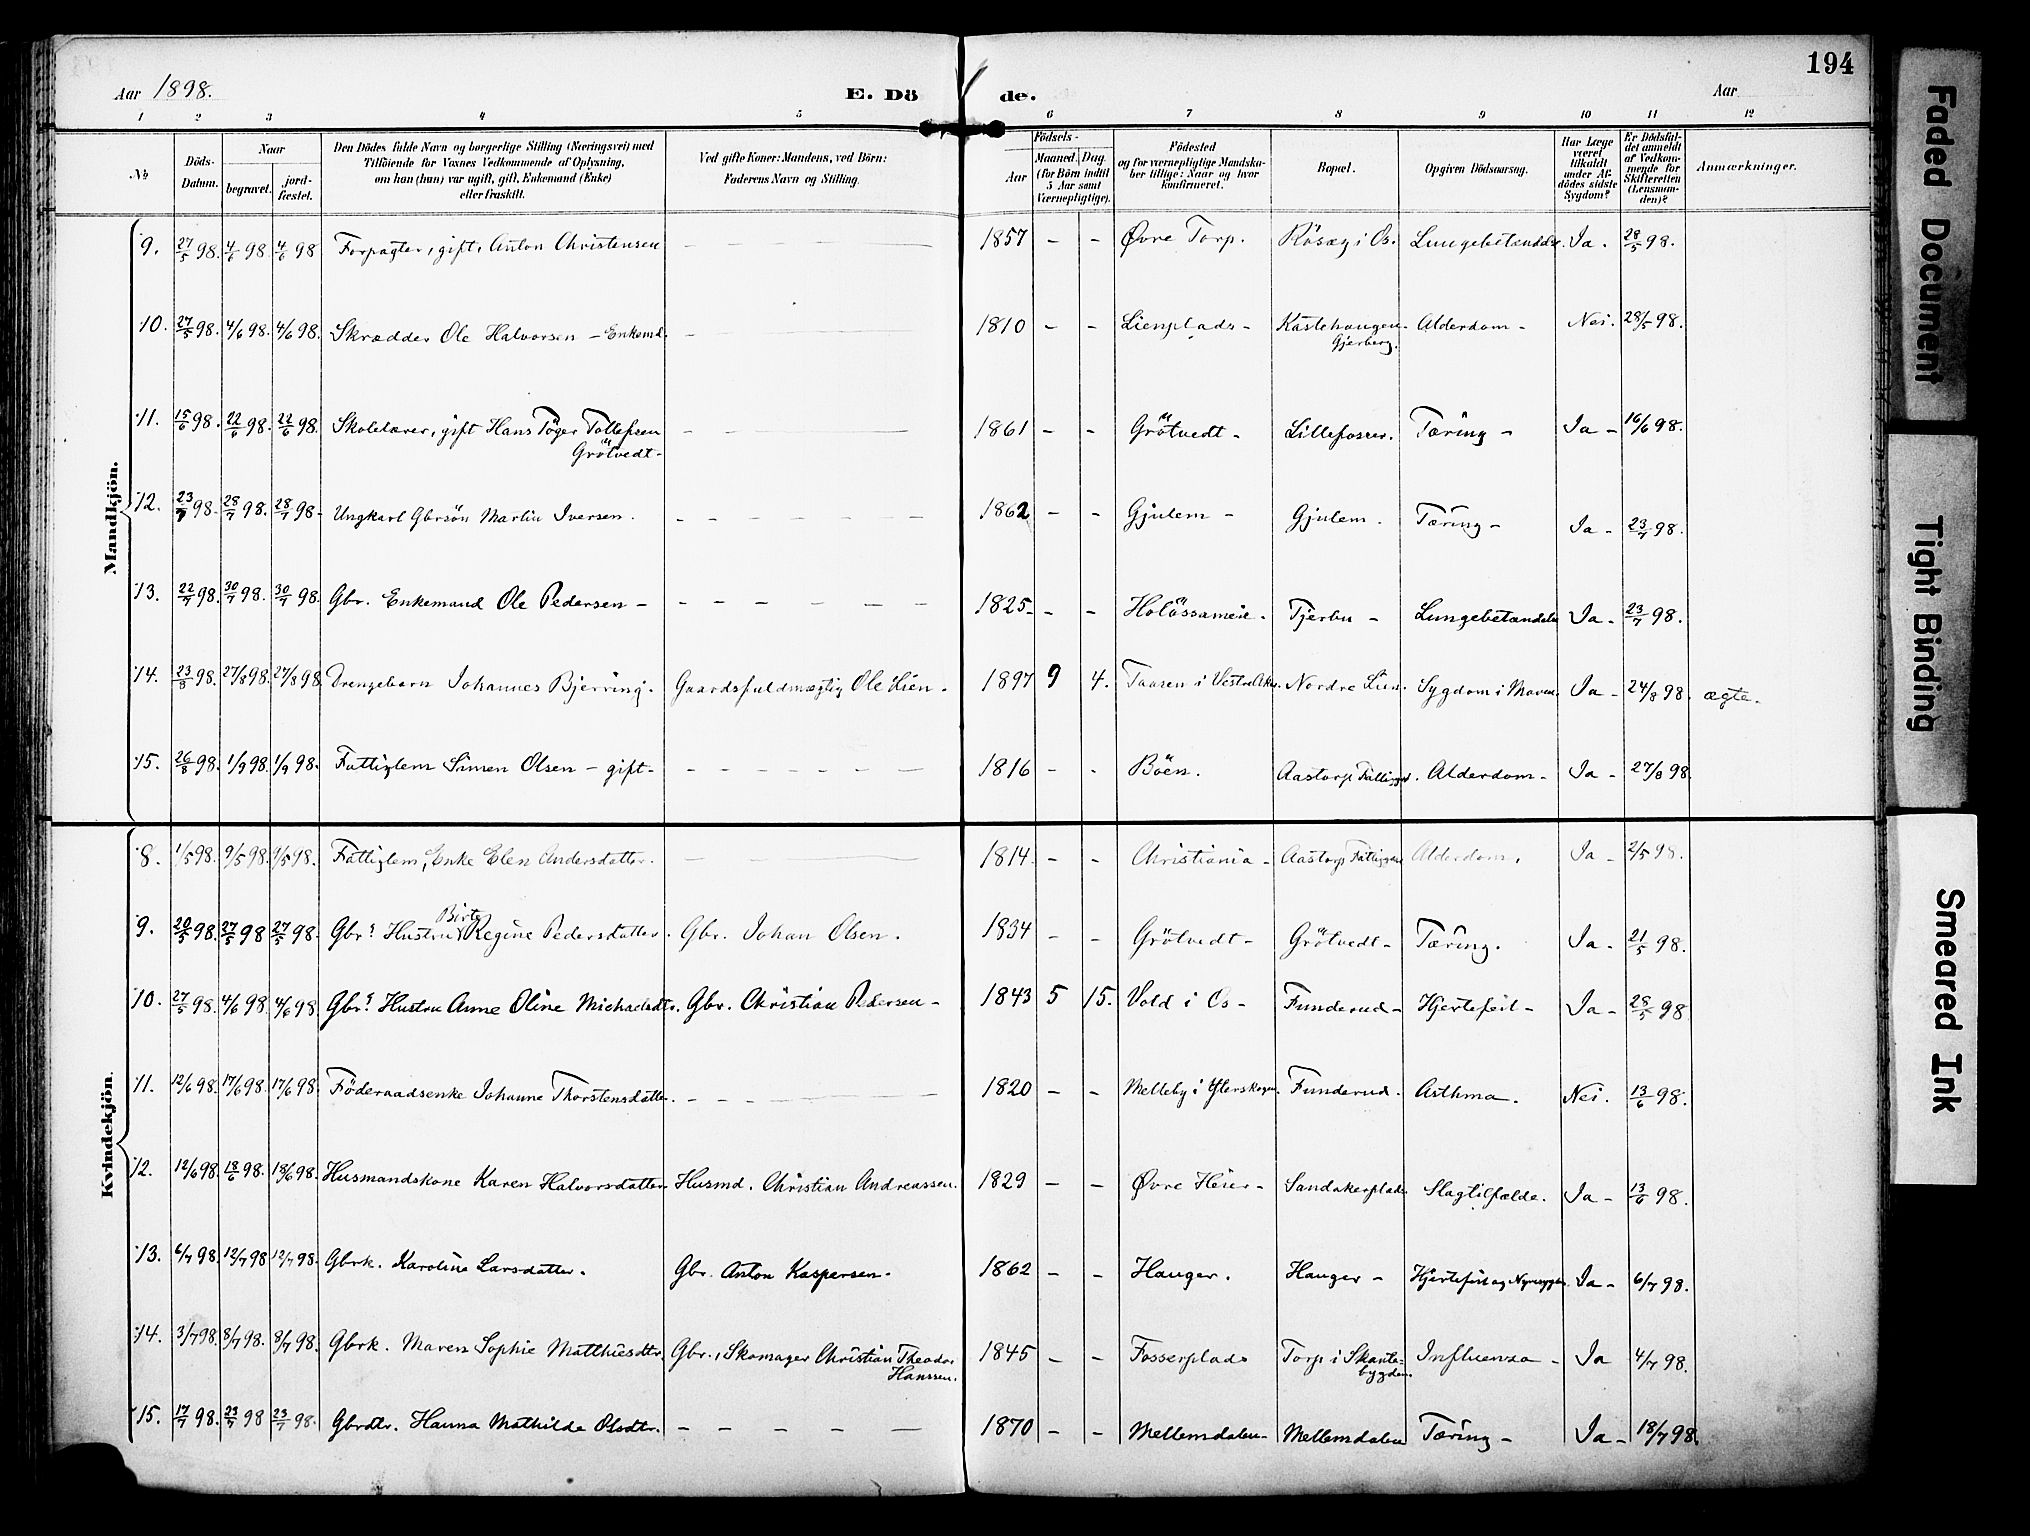 194
Aar 1898. E. Dö de. Aar
1 2 3 4 5 6 7 8 9 10 11 12
No Döds-Datum. Naar begravet. jord-fæstet. Den Dödes fulde Navn og borgerlige Stilling (Næringsvei) med Tilföiende for Voxnes Vedkommende af Oplysning, om han (hun) var ugift, gift, Enkemand (Enke) eller fraskilt. Ved gifte Koner: Mandens, ved Börn: Faderens Navn og Stilling. Födsels- Aar Maaned. Dag. (for Börn indtil 5 Aar samt Værnepligtige). Födested og for værnepligtige Mandskaber tillige: Naar og hvor konfirmeret. Bopæl. Opgiven Dödsaarsag. Har Læge været tilkaldt under Afdödes sidste Sygdom? Er Dödsfaldet anmeldt af Vedkommende for Skifteretten (Lensmanden)? Anmærkninger.
Mandkjön.
9. 27/5 98. 4/6 98 4/6 98 Forpagter, gift, Anton Christensen — — — 1857 - - Øvre Torp. Rösæg i Os. Lungebetændelse. Ja. 28/5 98.
10. 27/5 98. 4/6 98. 4/6 98. Skrædder Ole Halvorsen - Enkemd. - — 1810 - - Lienplads - Kastehaugen Gjerberg. Alderdom - Nei. 28/5 98.
11. 15/6 98. 22/6 98. 22/6 98. Skolelærer, gift Hans Töger Tollefsen Grötvedt - - - — 1861 - - Grötvedt - Lillefosser. Tæring - Ja - 16/6 98.
12. 23/7 98. 28/7 98. 28/7 98 - Ungkarl Gbrsön Martin Iversen. - - - - - - 1862 - - Gjulem - Gjulem. Tæring - Ja - 23/7 98.
13. 22/7 98. 30/7 98. 30/7 98. Gbr. Enkemand Ole Pedersen - - - - - - - 1825 - - - Holössameie. Tjerbu - Lungebetændelse Ja - 23/7 98.
14. 23/8 98. 27/8 98. 27/8 98 Drengebarn Johannes Bjerring. Gaardsfuldmægtig Ole Lien. 1897 9 4. Taasen i Vestre Aker Nordre Lien. Sygdom i Maven. Ja - 24/8 98. ægte.
15. 26/8 98 1/9 98. 1/9 98. Fattiglem Simen Olsen - gift - - - - - - - 1816 - - Böen. Aastorp Fattiggd. Alderdom - Ja - 27/8 98.
Kvindekjön.
8. 1/5 98. 9/5 98. 9/5 98. Fattiglem, Enke Elen Andersdatter. — — — 1814. - - Christiania - Aastorp Fattiggaard Alderdom. Ja - 2/5 98.
9. 20/5 98. 27/5 98 27/5 98. Gbrs Hustru Birte Regine Pedersdatter. Gbr. Johan Olsen. 1834 - - Grötvedt - Grötvedt - Tæring. Ja - 21/5 98.
10. 27/5 98. 4/6 98 4/6 98 Gbrs Hustru Anne Oline Michaelsdtr. Gbr. Christian Pedersen - 1843 5 15. Vold i Os - Funderud - Hjertefeil - Ja - 28/5 98
11. 12/6 98. 17/6 98. 17/6 98. Föderaadsenke Johanne Thorstensdatter. - - - — 1820 - - Melleby i Ytterskogen. Funderud. Asthma. Nei. 13/6 98.
12. 12/6 98. 18/6 98. 18/6 98. Husmandskone Karen Halvorsdatter Husmd. Christian Andreassen. 1829 - - Øvre Heier - Sandakerplads Slagtilfælde. Ja - 13/6 98.
13. 6/7 98. 12/7 98 12/7 98. Gbrk. Karoline Larsdatter. Gbr. Anton Kaspersen. 1862 - - Hauger. Hauger - Hjertefeil og Nyresygdom Ja - 6/7 98.
14. 3/7 98. 8/7 98. 8/7 98. Gbrk. Maren Sophie Matthiesdtr. Gbr., Skomager Christian Theodor Hanssen. 1845 - - Fosserplads Torp i Skantebygden. Influenza - Ja 4/7 98.
15. 17/7 98. 23/7 98 23/7 98. Gbrdtr. Hanna Mathilde Olsdtr. - - - - - 1870 - - Mellemdalen - Mellemdalen Tæring - Ja - 18/7 98.
Faded Document
Tight Binding
Smeared Ink